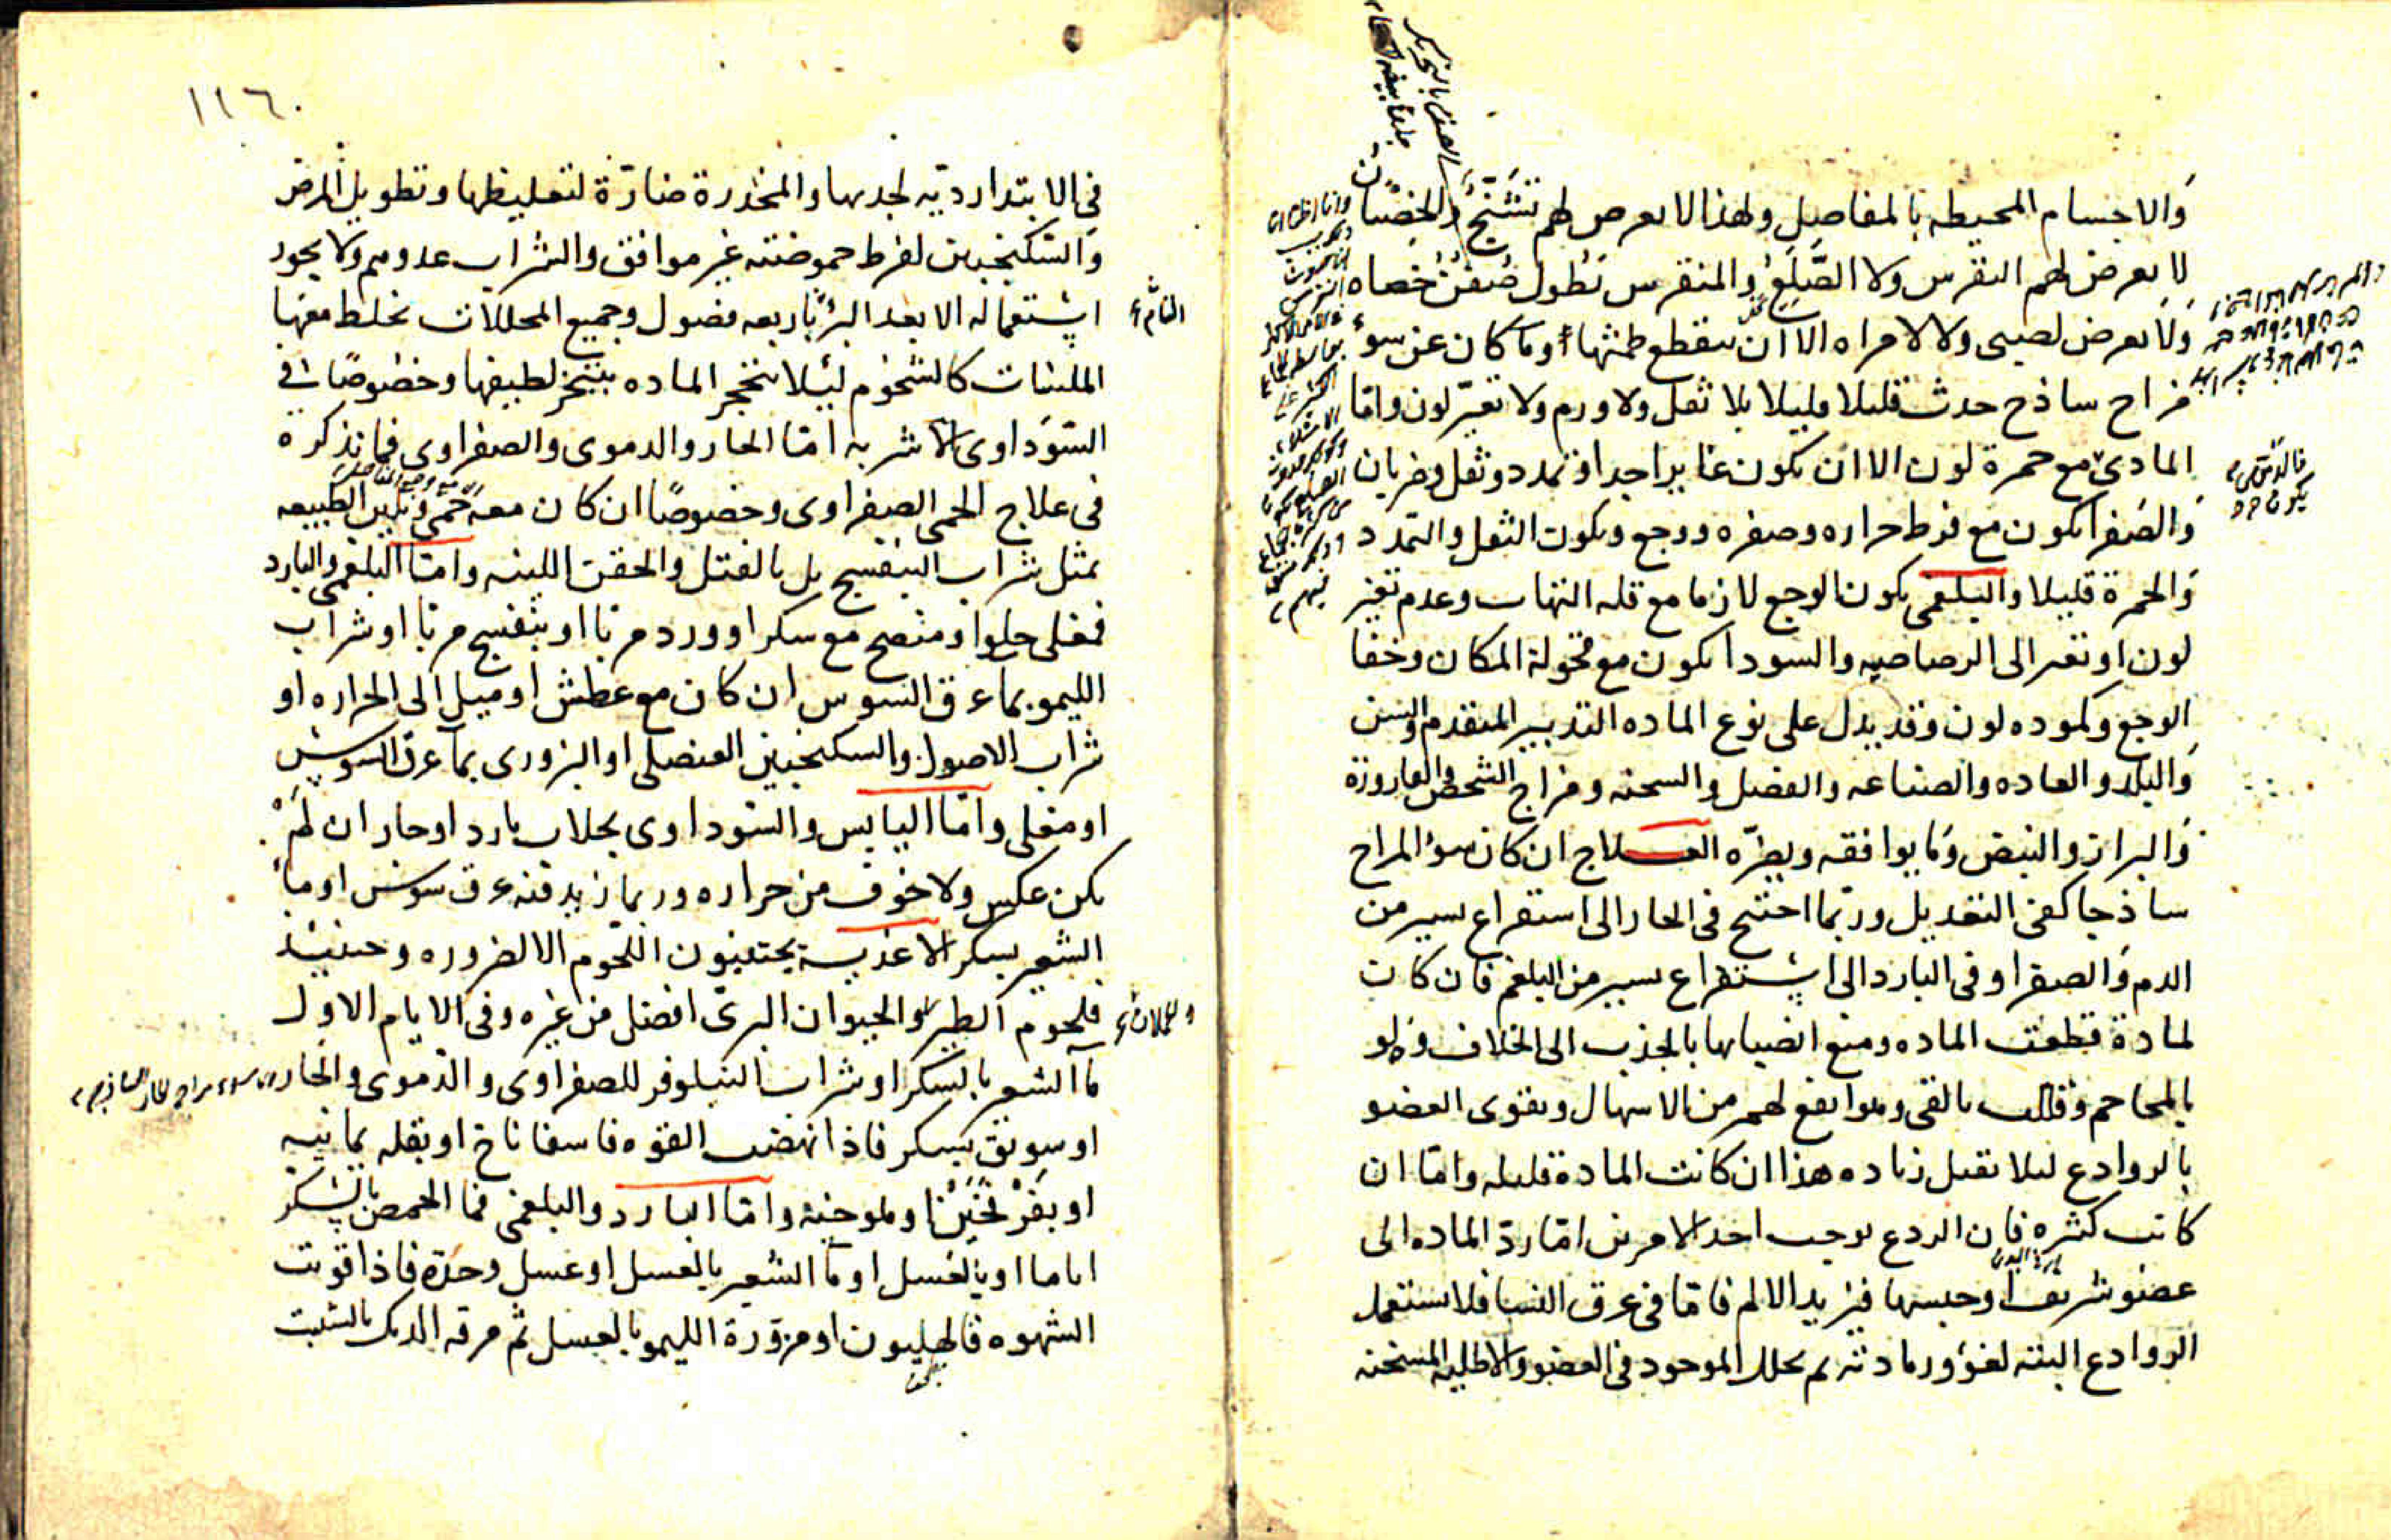 والاجسام المحيطه بالمفاصل ولهذا لا يعرض لهم تشنج والخصيان
لا يعرض لهم النقرس ولا الصلع والمنقرس تطول صفن خصاه
ولا يعرض لصبي ولا لامراه الا ان ينقطع طمثها وما كان عن سوء
مزاج ساذج حدث قليلا قليلا بلا ثقل ولا ورم ولا تغير لون واما
المادي مع حمرة لون الا ان يكون غايرا جدا وتمدد وثقل وضربان
والصفرا يكون مع فرط حراره وصفره ووجع ويكون الثقل والتمدد
والحمرة قليلا والبلغمي يكون الوجع لازما مع قله التهاب وعدم تغير
لون او تغير الى الرصاصيه والسودا يكون مع قحولة المكان وخفا
الوجع وكموده لون وقد يدل على نوع الماده التدبير المتقدم والسن
والبلد والعاده والصناعه والفصل والسحنه ومزاج الشخص والقاروره
والبراز والنبض وما يوافقه ويضره العلاج ان كان سوء المزاج
ساذجا كفى التعديل وربما احتيج في الحار الى استفراغ يسير من
الدم والصفرا وفي البارد الى استفراغ يسير من البلغم فان كان
لمادة قطعت الماده ومنع انصبابها بالجذب الى الخلاف ولو
بالمحاجم وقللت بالقي وهو انفع لهم من الاسهال ويقوى العضو
بالروادع ليلا يقبل زياده هذا ان كانت المادة قليله واما ان
كانت كثيره فان الردع يوجب احد الامرين اما رد الماده الى
عضو شريف او حبسها فيزيد الالم فاما في عرق النسا فلا يستعمل
الروادع البته لغؤور مادته ثم يحلل الموجود في العضو والاطليه المسخنه
١١٦
في الابتدا رديه لجذبها والمخدرة ضارة لتغليظها وتطويل المرض
والسكنجبين لفرط حموضته غير موافق والشراب عدوهم ولا يجوز
استعماله الا بعد البرء باربعه فصول وجميع المحللات تخلط معها
التام
الملينات كالشحوم ليلا تتحجر الماده بتبخر لطيفها وخصوصا في
السوداوى الاشربه اما الحار والدموى والصفراوى فما نذكره
في علاج الحمى الصفراوى وخصوصا ان كان معه حمى وتليين الطبيعه
بمثل شراب البنفسج بل بالفتل والحقن اللينه واما البلغمي والبارد
فمغلى حلو او منضج مع سكر او ورد مربا او بنفسج مربا او شراب
الليمو بما عرق السوس ان كان مع عطش او ميل الى الحراره او
شراب الاصول والسكنجبين العنصلى او البزورى بما عرق السوس
او مغلى واما اليابس والسوداوى بجلاب بارد او حار ان لم
يكن عكس ولا خوف من حراره وربما زيد فيه عرق سوس او ما
الشعير بسكر الاغذيه يجتنبون اللحوم الا لضروره وحينيذ
فلحوم الطير والحيوان البرى افضل من غيره وفي الايام الاول
ما الشعير بالسكر او شراب النيلوفر للصفراوى والدموى والحار
او سويق بسكر فاذا نهضت القوه فاسفاناخ او بقله يمانيه
او بقر نخين او ملوخيه واما البارد والبلغمى فما الحمص بالسكر
اياما او بالعسل او ما الشعير بالعسل او عسل وحده فاذا قويت
الشهوه فالهليون او مزورة الليمو بالعسل ثم مرقه الديك بالشبت